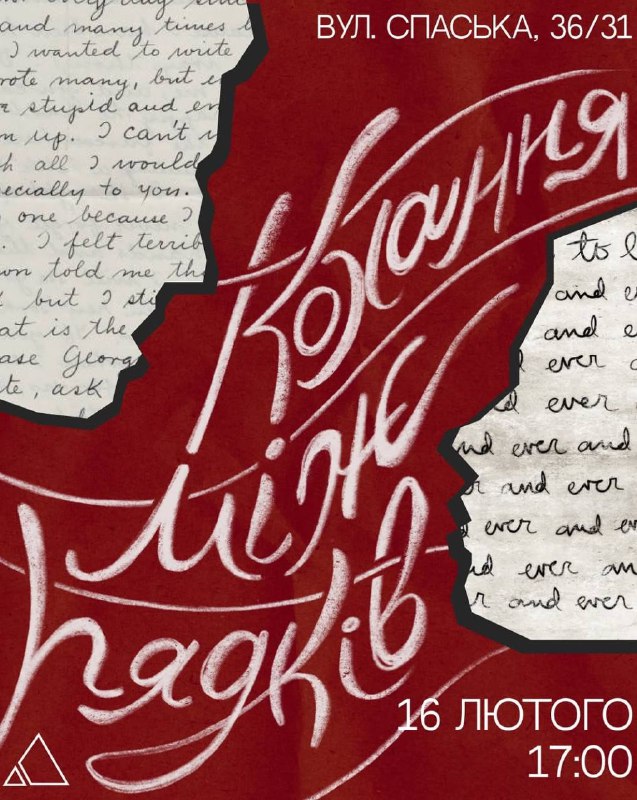 ВУЛ. СПАСЬКА, 36/31
and many times
I wanted to write
wrote many, but
stupid and
up. I can't
all I would
to you.
one because I
I felt
told me
but I
at is the
ask
Кохання
між
рядків
to
and
and
ever
ever
and ever and
and ever
ever and
ever
and ever
16 ЛЮТОГО
17:00